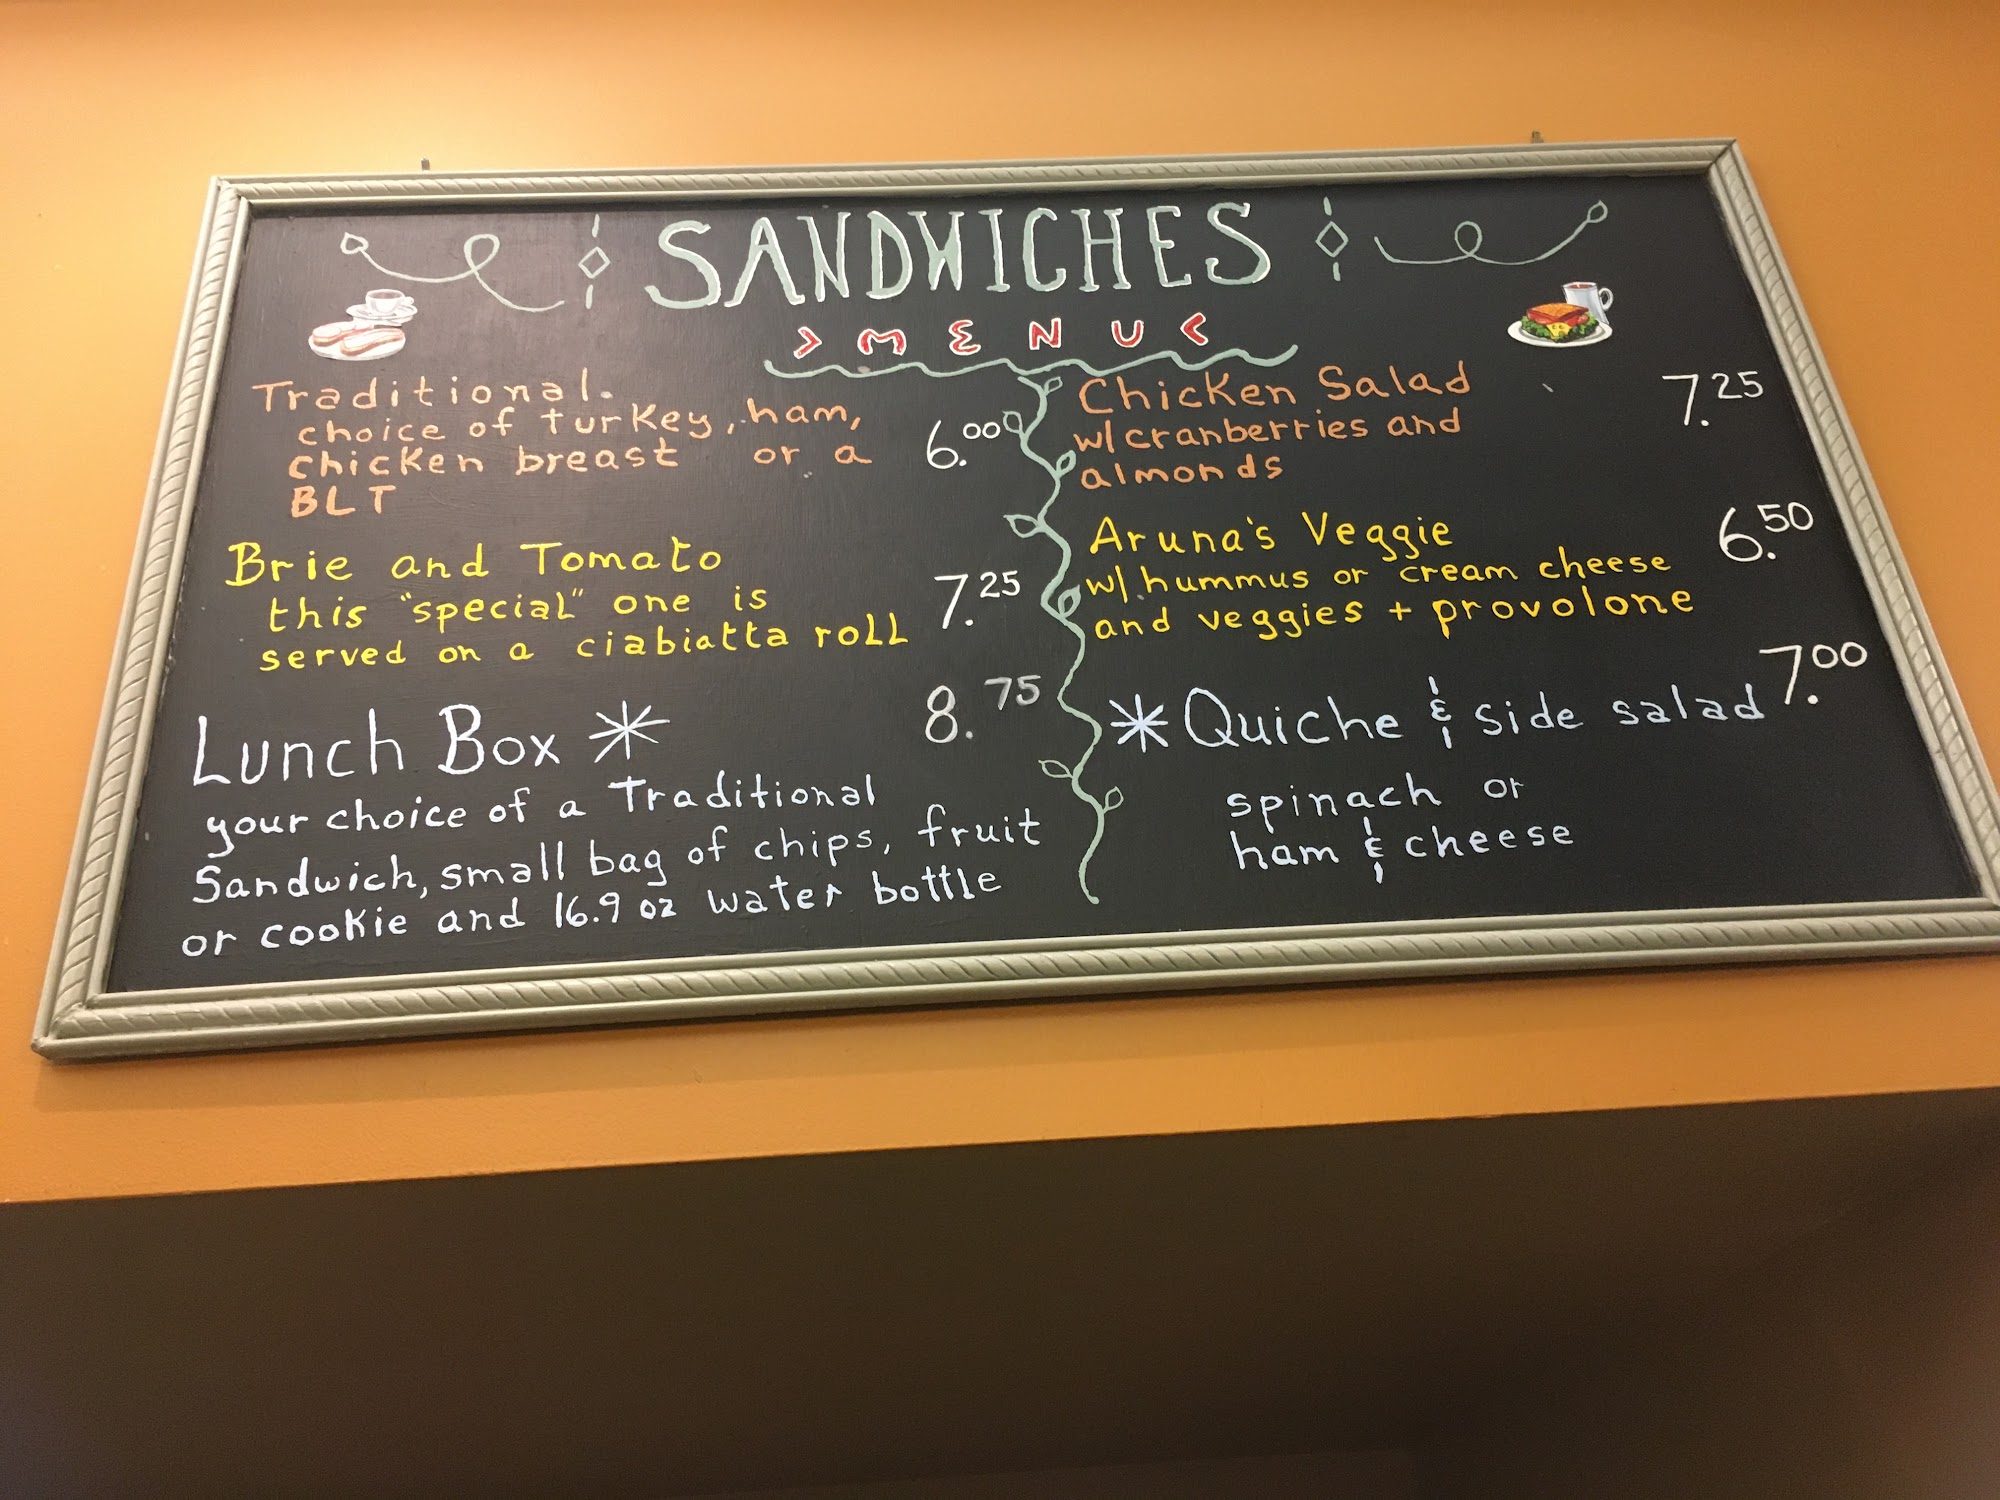 SANDWICHES
> MENU <
Traditional.
choice of turkey, ham,
chicken breast or a
BLT
6.00
Brie and Tomato
this "special" one is
served on a ciabiatta roll
7.25
Lunch Box *
8.75
your choice of a Traditional
Sandwich, small bag of chips, fruit
or cookie and 16.9 oz water bottle
Chicken Salad
w/cranberries and
almonds
7.25
Aruna's Veggie
w/hummus or cream cheese
and veggies + provolone
6.50
* Quiche & side salad
7.00
spinach or
ham & cheese